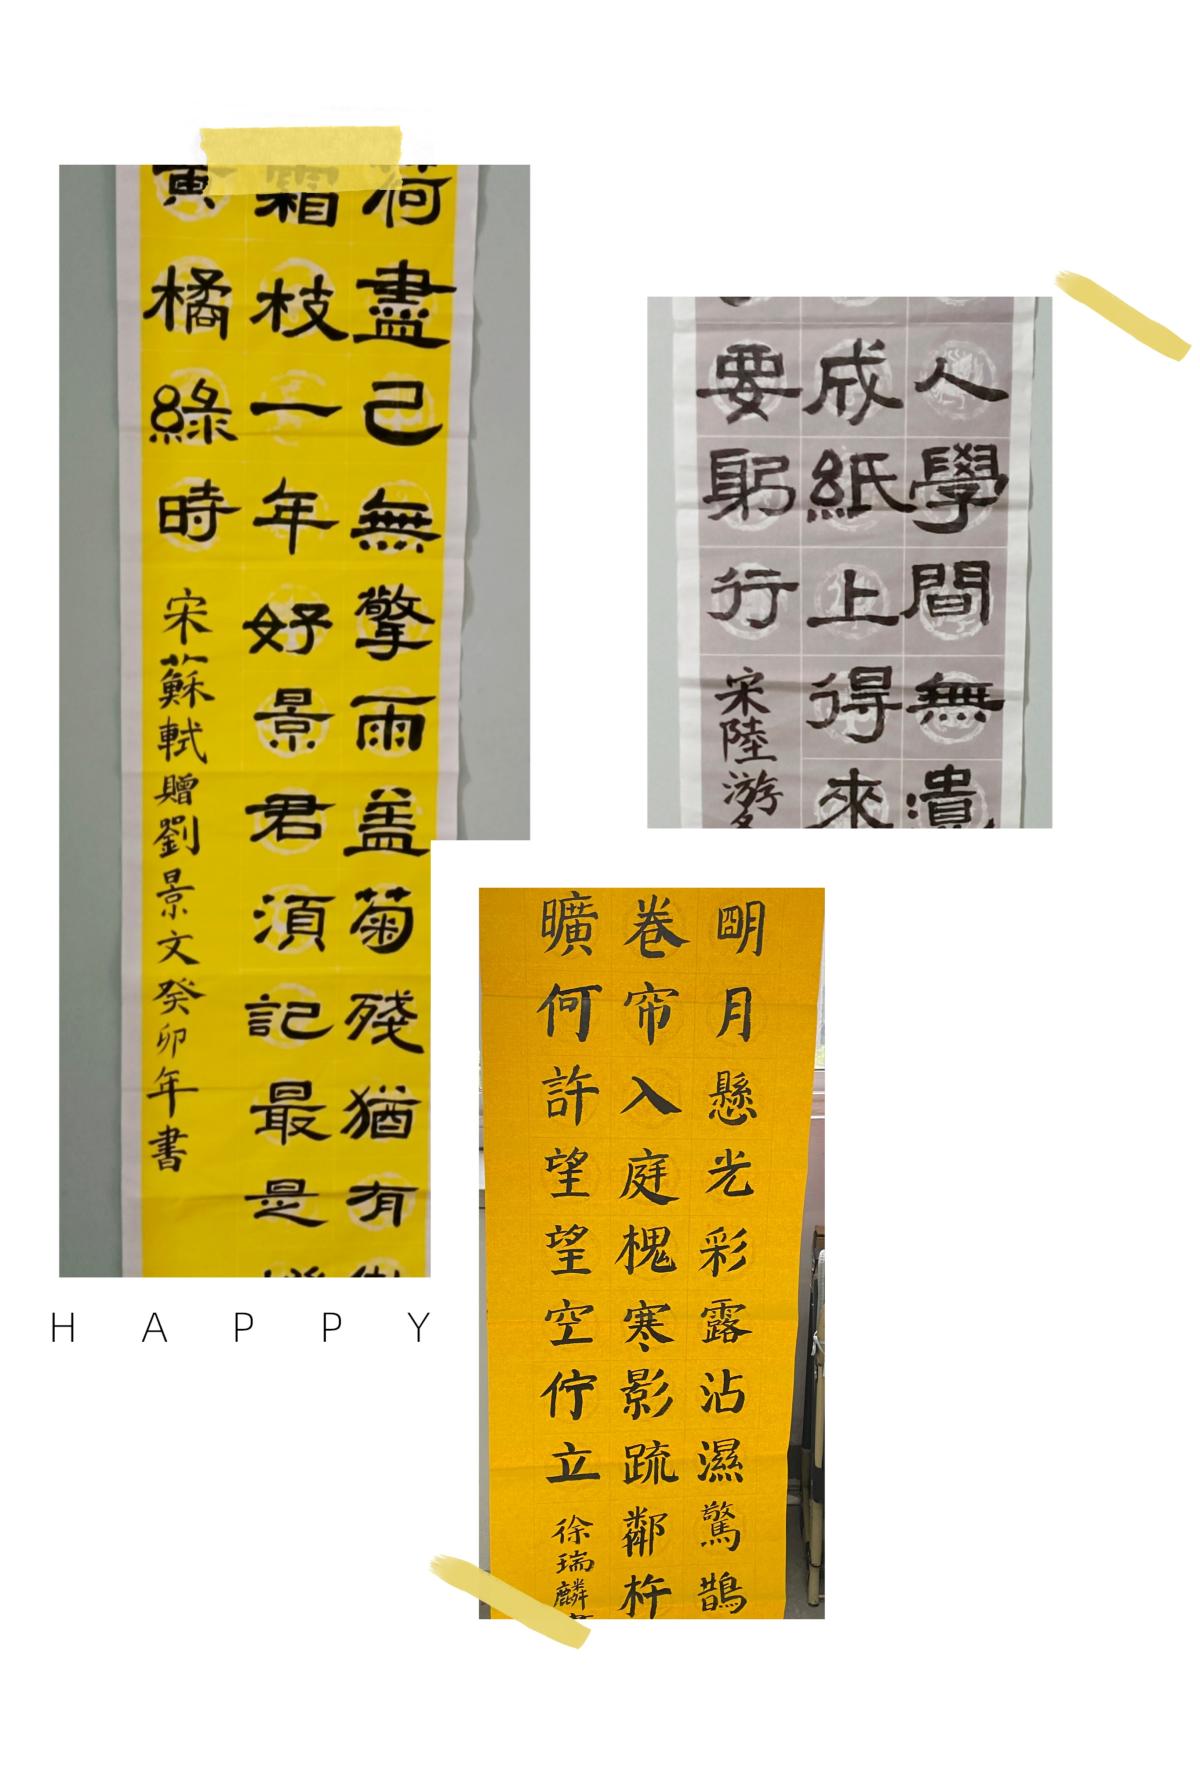 荷盡己無擎雨盖菊殘猶有
霜枝一年好景君須記最是
黄橘綠時
宋蘇軾贈劉景文癸卯年書
人學間無
成紙上得來
要躬行
宋陸游
明月懸光彩露沾濕驚鵲
卷帘入庭槐寒影疏鄰杵
曠何許望望空佇立
徐瑞麟
HAPPY